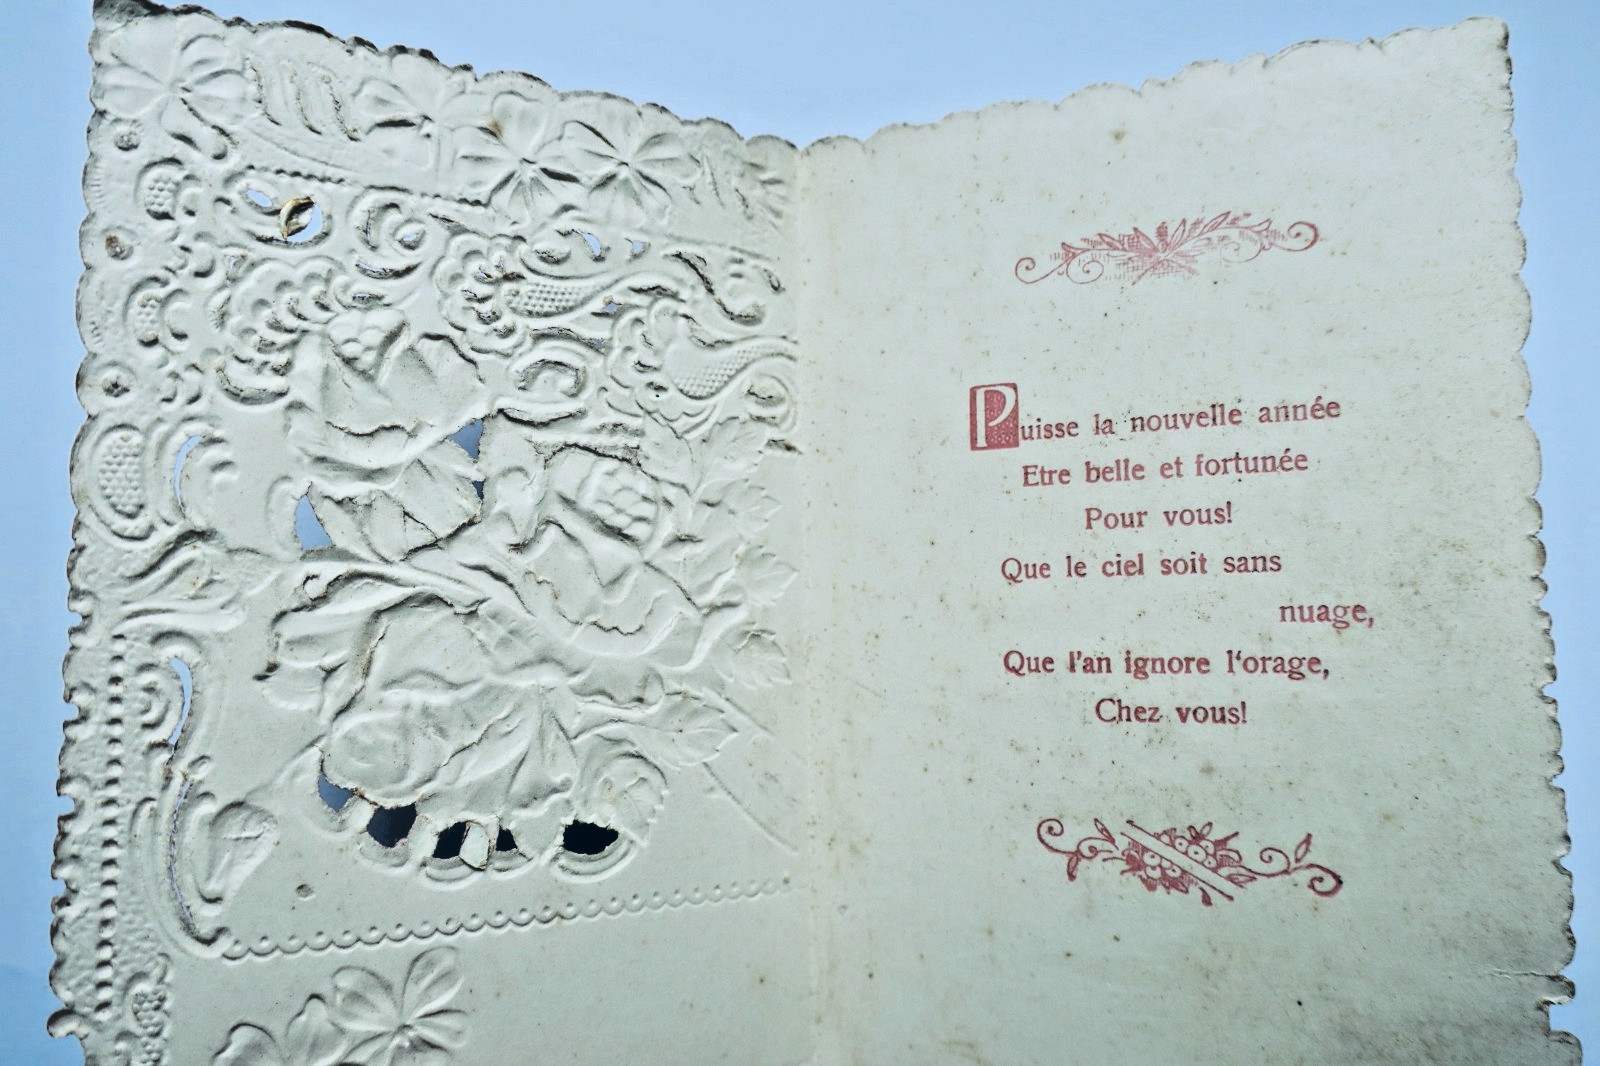 Puisse la nouvelle année
Etre belle et fortunée
Pour vous!
Que le ciel soit sans
nuage,
Que l'an ignore l'orage,
Chez vous!